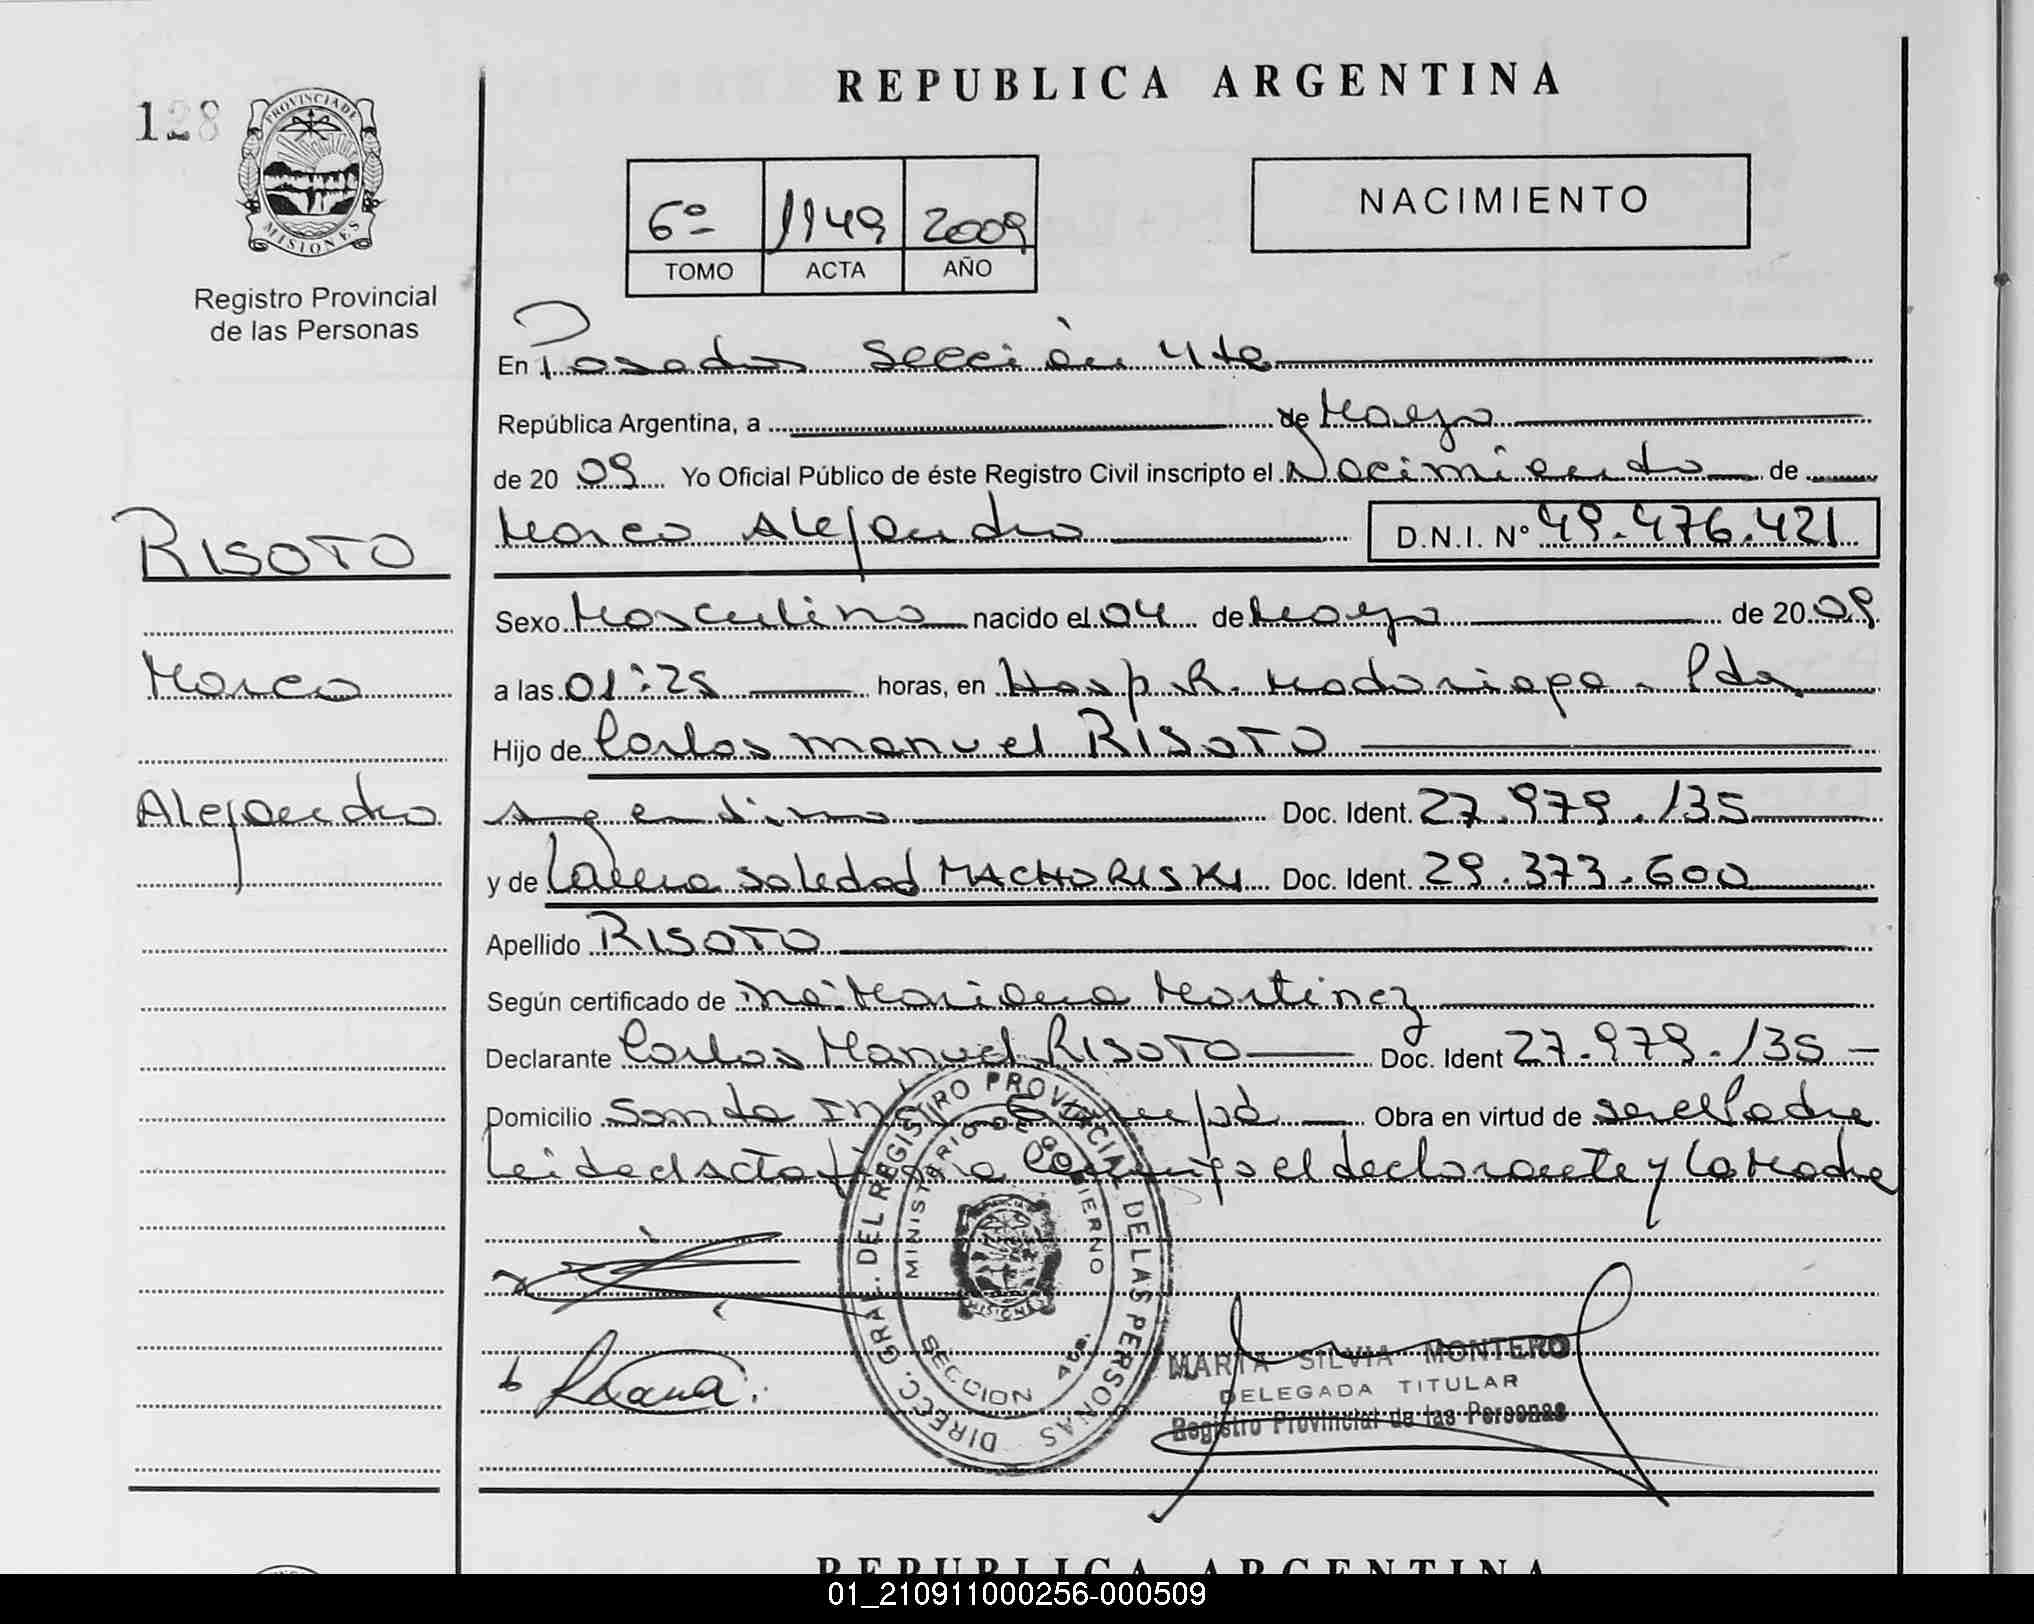 REPUBLICA ARGENTINA
128
PROVINCIA DE
MISIONES
Registro Provincial
de las Personas
6º 1149 2009
TOMO ACTA AÑO
NACIMIENTO
En Posadas Sección 4ta
República Argentina, a de Mayo
de 20 09 Yo Oficial Público de éste Registro Civil inscripto el Nacimiento de
Marco Alejandro D.N.I. Nº 49.476.421
RISOTO
Marco
Alejandro
Sexo Masculino nacido el 04 de Mayo de 20 09
a las 01:25 horas, en Hosp. R. Madariaga - Pdas
Hijo de Carlos Manuel RISOTO
Argentino Doc. Ident. 27.979.135
y de Soledad MACHORISKI Doc. Ident. 29.373.600
Apellido RISOTO
Según certificado de Mariana Martinez
Declarante Carlos Manuel RISOTO Doc. Ident 27.979.135
Domicilio Santa Obra en virtud de ser el Padre
Leida el acta firma Conmigo el declarante y la Madre
DIRECC. GRAL. DEL REGISTRO PROVINCIAL DE LAS PERSONAS
MINISTERIO DE GOBIERNO
MISIONES
SECCION 4ta.
MARTA SILVIA MONTERO
DELEGADA TITULAR
Registro Provincial de las Personas
REPUBLICA ARGENTINA
01_210911000256-000509